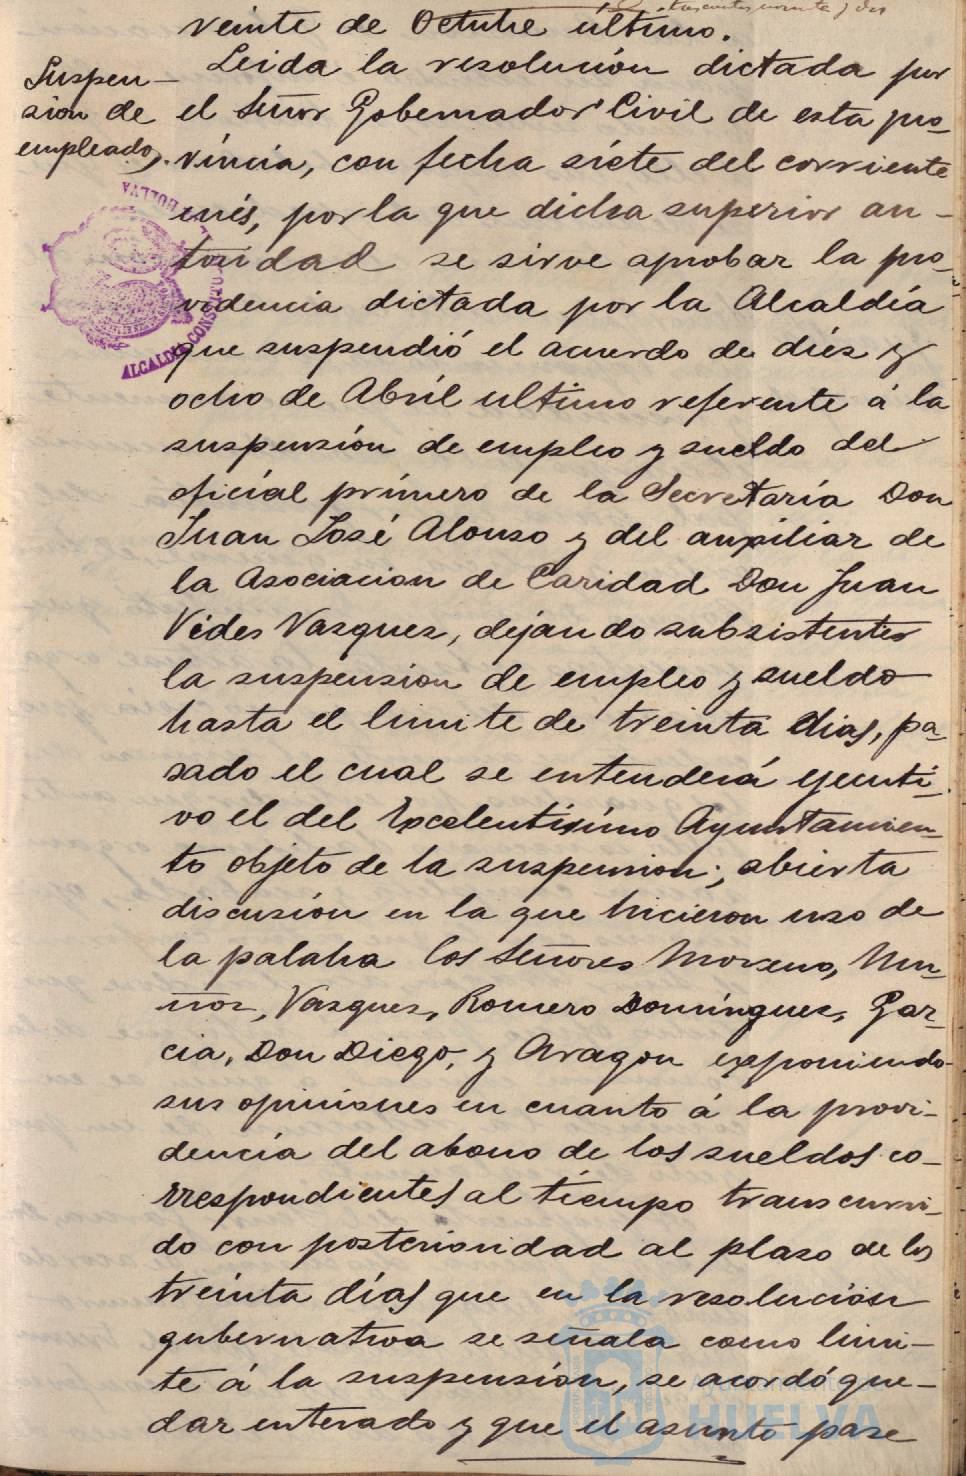 veinte de Octubre ultimo.
Suspen-
sion de
empleados.
Leida la resolución dictada por
el Señor Gobernador Civil de esta pro-
vincia, con fecha siete del corriente
mes, por la que dicha superior au-
toridad se sirve aprobar la pro-
videncia dictada por la Alcaldía
que suspendió el acuerdo de diéz y
ocho de Abril ultimo referente á la
suspensión de empleo y sueldo del
oficial primero de la Secretaría Don
Juan José Alonso y del auxiliar de
la Asociacion de Caridad Don Juan
Vides Vazquez, dejando subsistentes
la suspension de empleo y sueldo
hasta el limite de treinta dias, pa-
sado el cual se entenderá ejecuti-
vo el del Excelentísimo Ayuntamien-
to objeto de la suspension; abierta
discusión en la que hicieron uso de
la palabra los Señores Moreno, Mu-
ñoz, Vazquez, Romero Domínguez, Gar-
cia, Don Diego, y Aragon exponiendo
sus opiniones en cuanto á la provi-
dencia del abono de los sueldos co-
rrespondientes al tiempo transcurri-
do con posterioridad al plazo de los
treinta días que en la resolución
gubernativa se señala como limi-
te á la suspensión, se acordó que-
dar enterado y que el asunto pase
ALCALDIA CONSTITUCIONAL
HUELVA
Ayuntamiento de
HUELVA